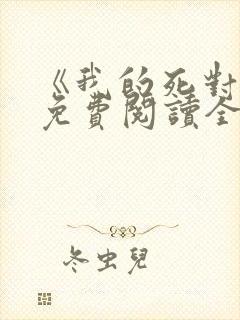 《我的死對
免費閱讀全
冬虫兒